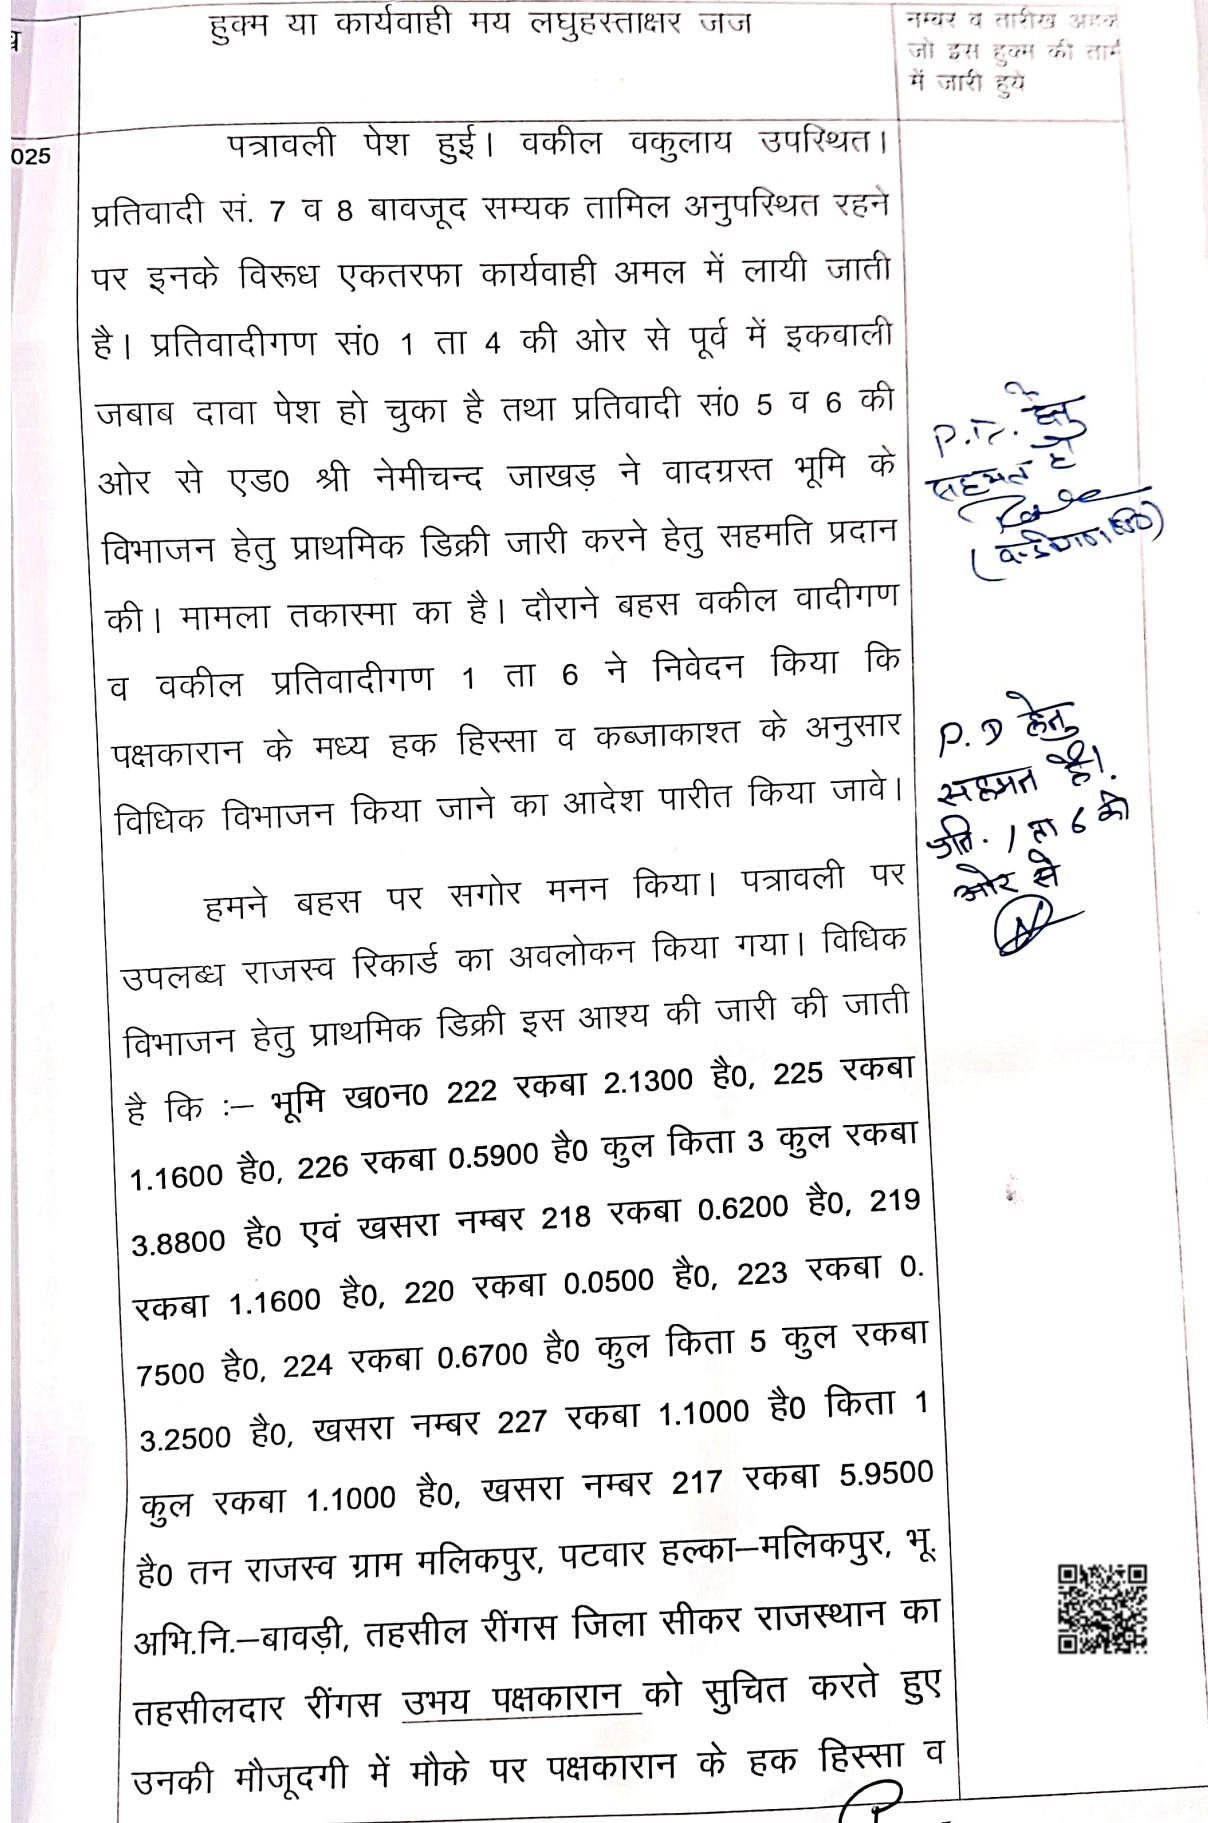 हुक्म या कार्यवाही मय लघुहस्ताक्षर जज
नम्बर व तारीख
जो इस हुक्म की
में जारी हुये
025
पत्रावली पेश हुई। वकील वकुलाय उपस्थित।
प्रतिवादी सं. 7 व 8 बावजूद सम्यक तामिल अनुपस्थित रहने
पर इनके विरूध एकतरफा कार्यवाही अमल में लायी जाती
है। प्रतिवादीगण सं0 1 ता 4 की ओर से पूर्व में इकवाली
जबाब दावा पेश हो चुका है तथा प्रतिवादी सं0 5 व 6 की
ओर से एड0 श्री नेमीचन्द जाखड़ ने वादग्रस्त भूमि के
विभाजन हेतु प्राथमिक डिक्री जारी करने हेतु सहमति प्रदान
की। मामला तकास्मा का है। दौराने बहस वकील वादीगण
व वकील प्रतिवादीगण 1 ता 6 ने निवेदन किया कि
पक्षकारान के मध्य हक हिस्सा व कब्जाकाश्त के अनुसार
विधिक विभाजन किया जाने का आदेश पारीत किया जावे।
हमने बहस पर सगोर मनन किया। पत्रावली पर
उपलब्ध राजस्व रिकार्ड का अवलोकन किया गया। विधिक
विभाजन हेतु प्राथमिक डिक्री इस आश्य की जारी की जाती
है कि :– भूमि ख0न0 222 रकबा 2.1300 है0, 225 रकबा
1.1600 है0, 226 रकबा 0.5900 है0 कुल किता 3 कुल रकबा
3.8800 है0 एवं खसरा नम्बर 218 रकबा 0.6200 है0, 219
रकबा 1.1600 है0, 220 रकबा 0.0500 है0, 223 रकबा 0.
7500 है0, 224 रकबा 0.6700 है0 कुल किता 5 कुल रकबा
3.2500 है0, खसरा नम्बर 227 रकबा 1.1000 है0 किता 1
कुल रकबा 1.1000 है0, खसरा नम्बर 217 रकबा 5.9500
है0 तन राजस्व ग्राम मलिकपुर, पटवार हल्का–मलिकपुर, भू.
अभि.नि.–बावड़ी, तहसील रींगस जिला सीकर राजस्थान का
तहसीलदार रींगस उभय पक्षकारान को सुचित करते हुए
उनकी मौजूदगी में मौके पर पक्षकारान के हक हिस्सा व
हेतु
सहमत है
P.D हेतु
सहमत है।
प्रति. 1 ता 6 की
ओर से